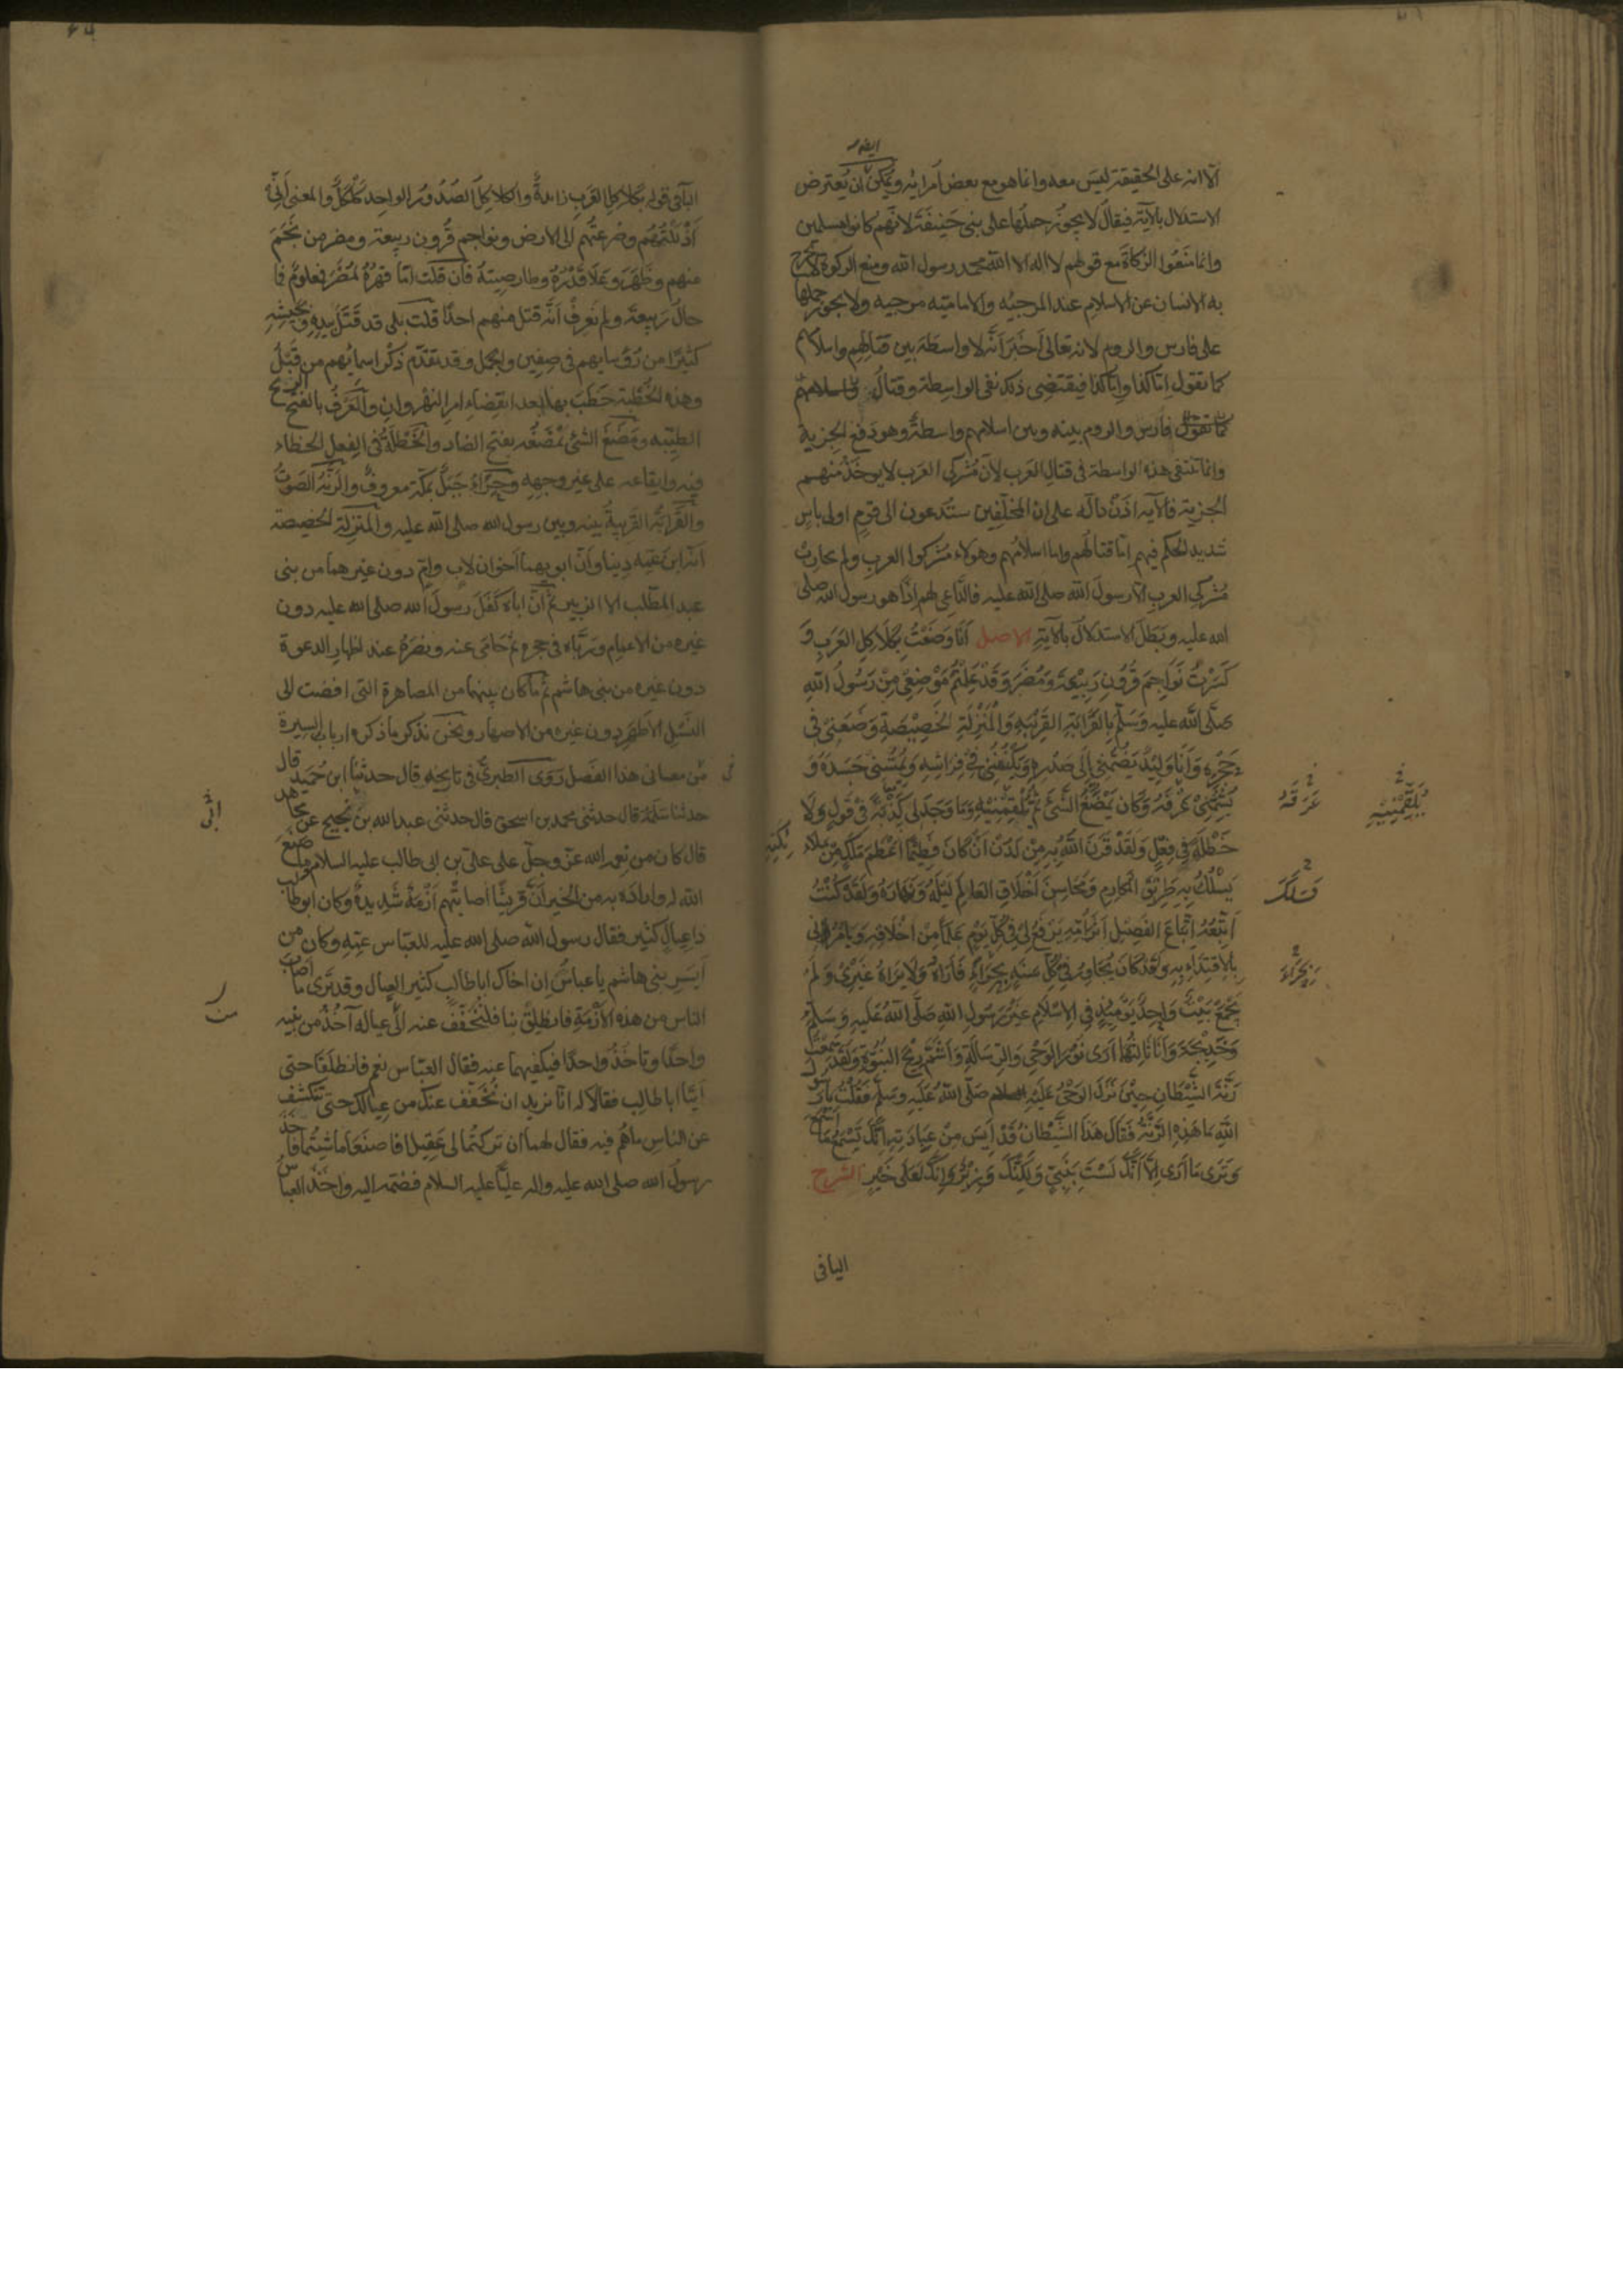 الا انه على الحقيقة ليس معه وانما هو مع بعض امرائه ويمكن ان يعترض
الاستدلال بالآية فيقال لا يجوز حملها على بنى حنيفة لانهم كانوا مسلمين
وانما منعوا الزكاة مع قولهم لا اله الا الله محمد رسول الله ومنع الزكوة لا يخرج
به الانسان عن الاسلام عند المرجئه والامامية مرجيه ولا يجوز حملها
على فارس والروم لانه تعالى اخبر انه لا واسطة بين قتالهم واسلامهم
كما تقول اما كذا واما كذا فيقتضى ذلك نفى الواسطة وقتال
فارس والروم بينه وبين اسلامهم واسطة وهو دفع الجزية
وانما تنتفى هذه الواسطة فى قتال العرب لان مشركى العرب لا يوخذ منهم
الجزية فالآية اذن دالة على ان المخلفين ستدعون الى قوم اولى باس
شديد الحكم فيهم اما قتالهم واما اسلامهم وهولاء مشركوا العرب ولم يحارب
مشركى العرب الا رسول الله صلى الله عليه فالداعى لهم اذا هو رسول الله صلى
الله عليه وبطل الاستدلال بالآية الاصل انا وضعت بكلاكل العرب و
كسرت نواجم قرون ربيعة ومضر وقد علمتم موضعى من رسول الله
صلى الله عليه وسلم بالقرابة القريبه والمنزلة الخصيصة وضعنى فى
حجره وانا وليد يضمنى الى صدره ويكنفنى فى فراشه ويمسنى جسده و
يشمنى عرفه وكان يمضغ الشئ ثم يلقمنيه وما وجد لى كذبة فى قول ولا
خطلة فى فعل ولقد قرن الله به من لدن ان كان فطيما اعظم ملك من ملائكته
يسلك به طريق المكارم ومحاسن اخلاق العالم ليله ونهاره ولقد كنت
اتبعه اتباع الفصيل اثر امه يرفع لى فى كل يوم علما من اخلاقه ويامرنى
بالاقتداء به ولقد كان يجاور فى كل سنة بحراء فاراه ولا يراه غيرى ولم
يجمع بيت واحد يومئذ فى الاسلام غير رسول الله صلى الله عليه وسلم
وخديجة وانا ثالثهما ارى نور الوحى والرسالة واشم ريح النبوة ولقد سمعت
رنة الشيطان حين نزل الوحى عليه صلى الله عليه وسلم فقلت يا رسول
الله ما هذه الرنة فقال هذا الشيطان قد ايس من عبادته انك تسمع ما اسمع
وترى ما ارى الا انك لست بنبى ولكنك وزير وانك لعلى خير الشرح
عرفه
يلقمنيه
فسلك
بحراء
البآفى
البآ فى قوله بكلاكل العرب زائدة والكلاكل الصدور الواحد كلكل والمعنى انى
اذللتهم وصرعتهم الى الارض ونواجم قرون ربيعة ومضر من نجم
منهم وظهر وعلا قدره وطار صيته فان قلت اما قهره لمضر فمعلوم فما
حال ربيعة ولم نعرف انه قتل منهم احدا قلت بلى قد قتل بيده وبجيشه
كثيرا من رؤسايهم فى صفين والجمل وقد تقدم ذكر اسمائهم من قبل
وهذه الخطبة خطب بها بعد انقضاء امر النهروان والعرف بالفتح الريح
الطيبه ومضغ الشئ يمضغه بفتح الضاد والخطلة فى الفعل الخطاء
فيه وايقاعه على غير وجهه وحراء جبل بمكة معروف والرنة الصوت
والقرابة القريبة بينه وبين رسول الله صلى الله عليه والمنزلة الخصيصة
انه ابن عمه دينا وان ابويهما اخوان لاب وام دون غيرهما من بنى
عبد المطلب الا الزبير ثم ان اباه كفل رسول الله صلى الله عليه دون
غيره من الاعمام ورباه فى حجره ثم حامى عنه ونصره عند اظهار الدعوة
دون غيره من بنى هاشم ثم ما كان بينهما من المصاهرة التى افضت الى
النسل الاطهر دون غيره من الاصهار ونحن نذكر ما ذكره ارباب السيرة
من معانى هذا الفصل روى الطبرى فى تاريخه قال حدثنا ابن حميد قال
حدثنا سلمة قال حدثنى محمد بن اسحق قال حدثنى عبد الله بن نجيح عن مجاهد
قال كان من نعمه الله عز وجل على على بن ابى طالب عليه السلام وما صنع
الله له واراده به من الخير ان قريشا اصابتهم ازمة شديدة وكان ابو طالب
ذا عيال كثير فقال رسول الله صلى الله عليه للعباس عمه وكان من
ايسر بنى هاشم يا عباس ان اخاك ابا طالب كثير العيال وقد ترى ما اصاب
الناس من هذه الازمة فانطلق بنا فلنخفف عنه من عياله آخذ من بنيه
واحدا وتاخذ واحدا فيكفيهما عنه فقال العباس نعم فانطلقا حتى
اتيا ابا طالب فقالا له انا نريد ان نخفف عنك من عيالك حتى تنكشف
عن الناس ما هم فيه فقال لهما ان تركتما لى عقيلا فاصنعا ما شئتما فاخذ
رسول الله صلى الله عليه واله عليا عليه السلام فضمه اليه واخذ العباس